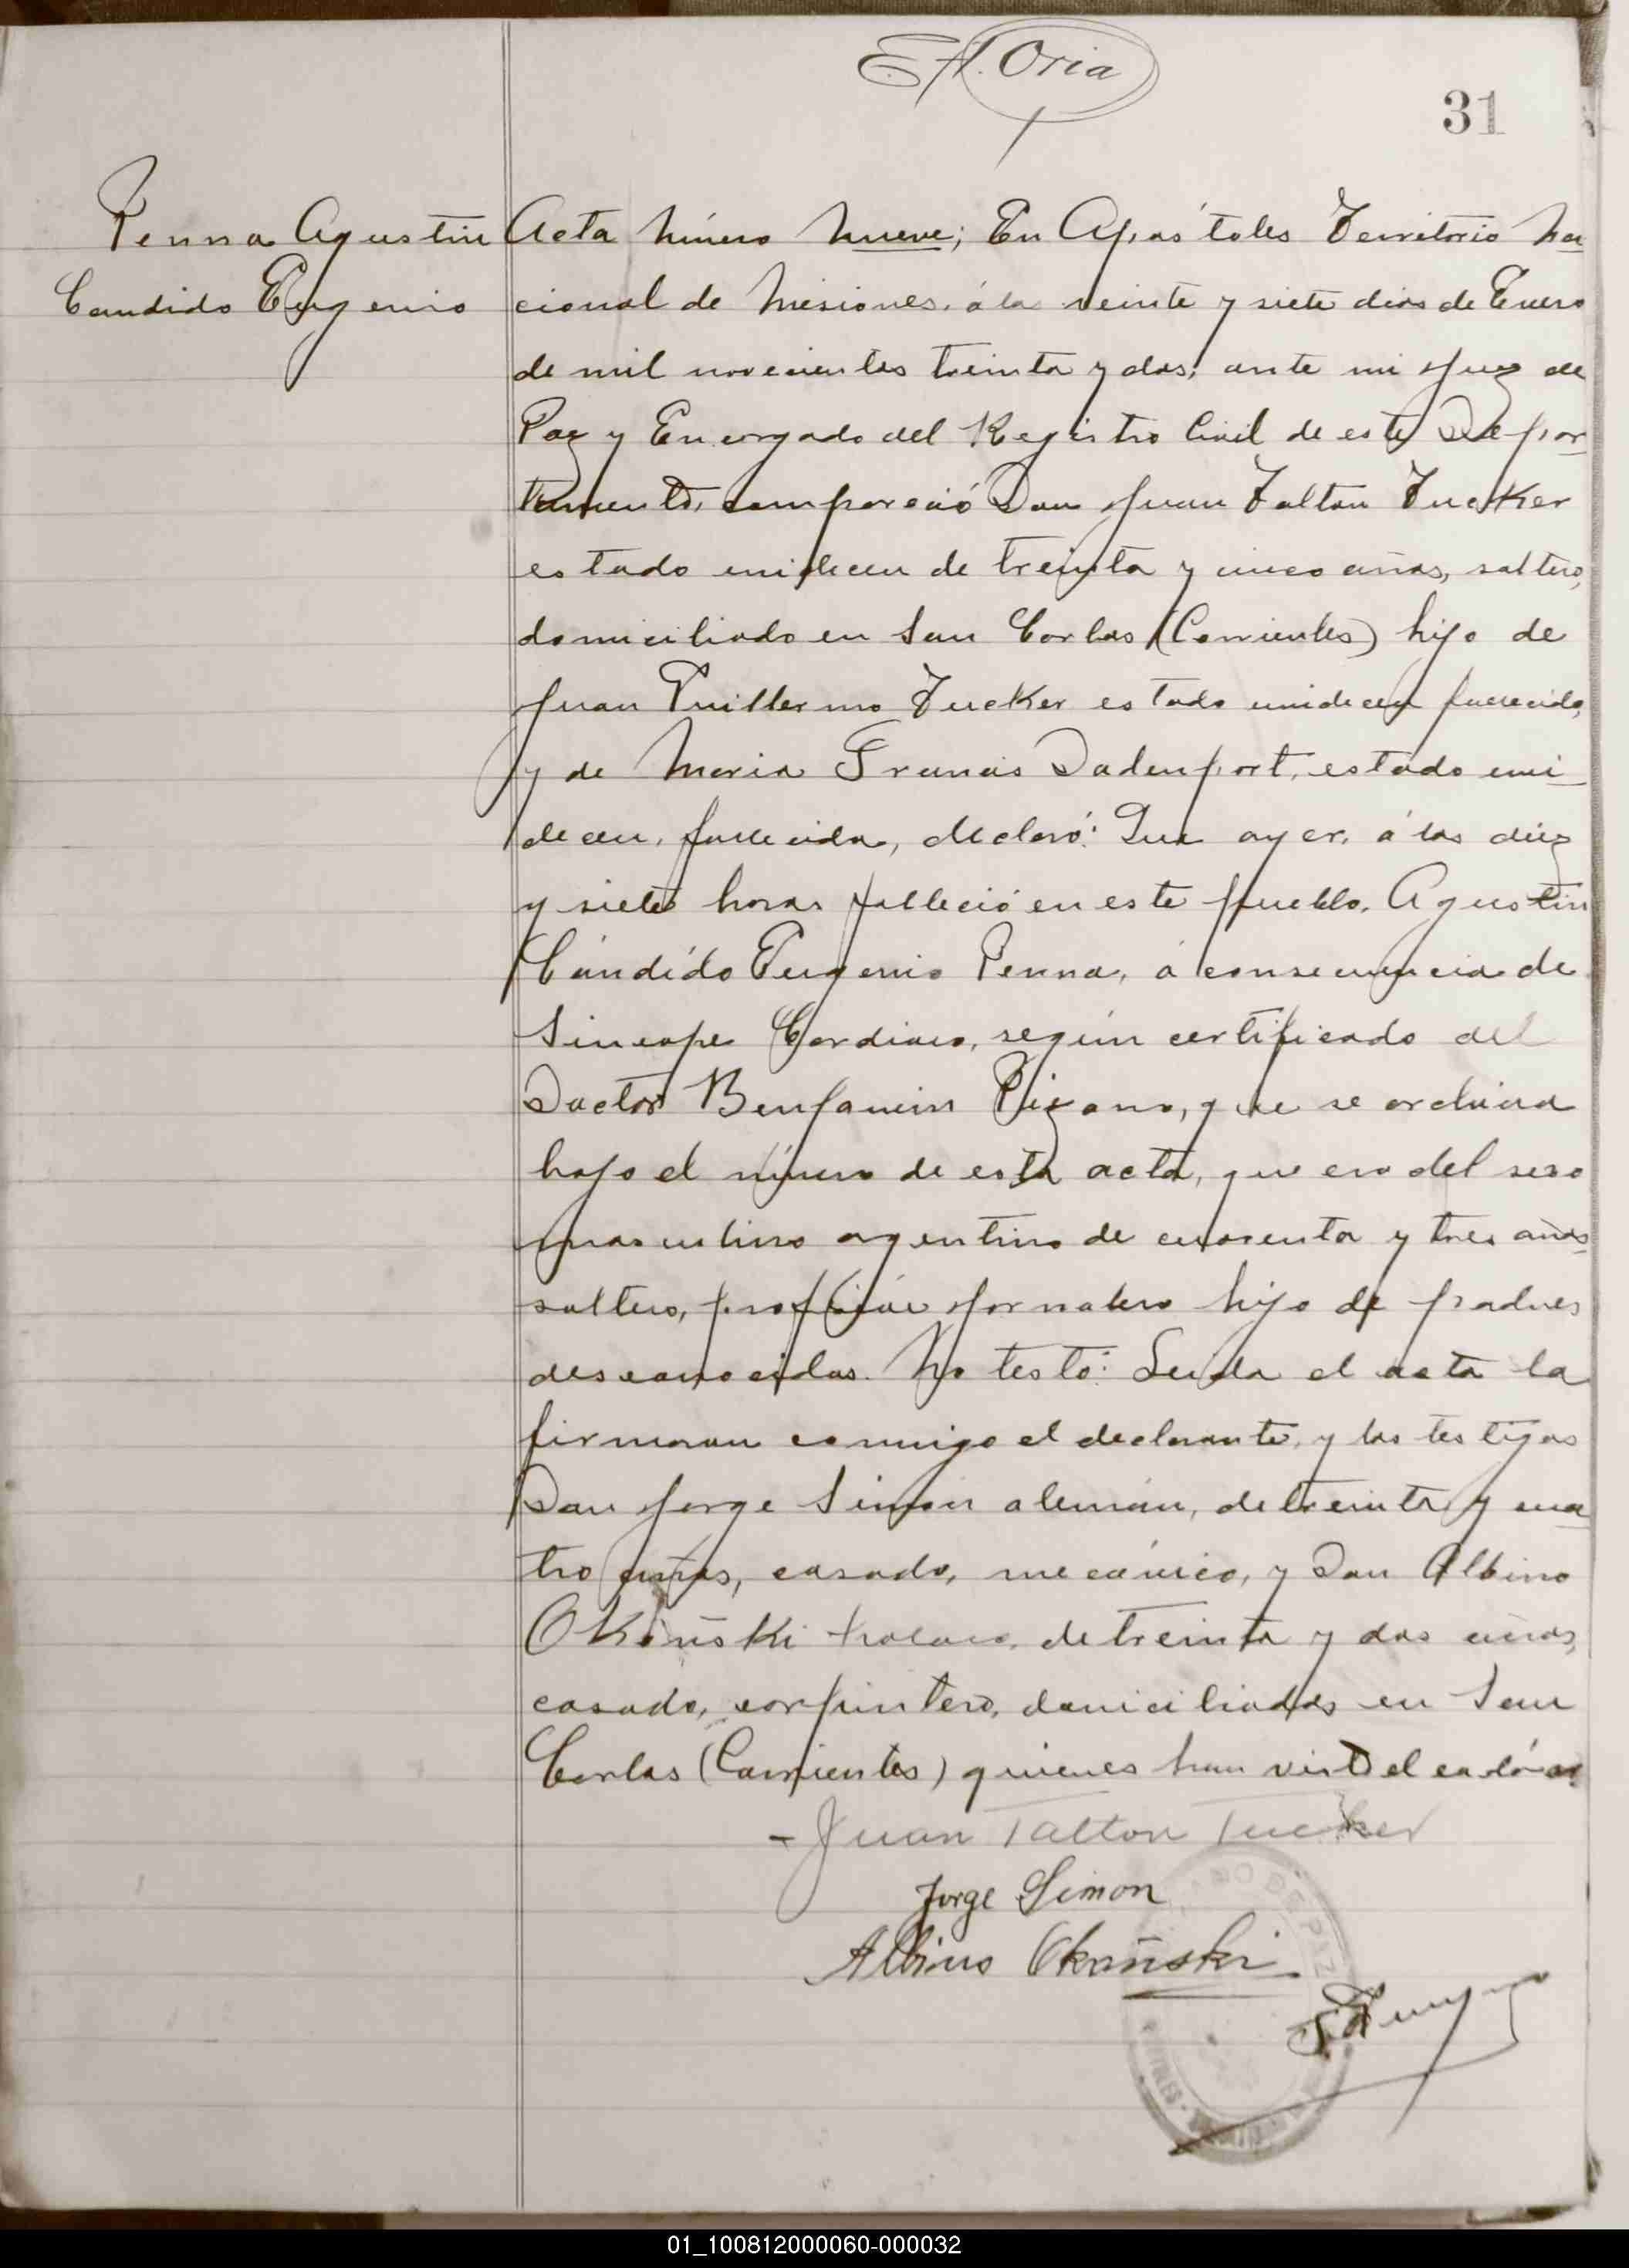 E. A. Oria
31
Penna Agustin
Candido Eugenio
Acta Número Nueve; En Apóstoles Território Na
cional de Misiones, á los veinte y siete dias de Enero
de mil novecientos treinta y dos, ante mi Juez de
Paz y Encargado del Registro Civil de este Depar
tamento, compareció Don Juan Talton Tucker
estado unidecen de treinta y cinco años, soltero,
domiciliado en San Carlos (Corrientes) hijo de
Juan Guillermo Tucker estado unidecen fallecido,
y de Maria Francis Dadenport, estado uni
decen, fallecida, declaró: Que ayer, á las diez
y siete horas falleció en este pueblo, Agustin
Cándido Eugenio Penna, á consecuencia de
Sincope Cardiaco, según certificado del
Doctor Benjamin Pizano, que se archiva
bajo el número de esta acta, que era del sexo
masculino argentino de cuarenta y tres años
soltero, profición jornalero hijo de padres
desconocidos. No testó: Leida el acta la
firmaron conmigo el declarante, y los testigos
Don Jorge Simon alemán, de treinta y cua
tro años, casado, mecánico, y Don Albino
Okoñski polaco, de treinta y dos años,
casado, carpintero, domiciliados en San
Carlos (Corrientes) quienes han visto el cadáver
- Juan Talton Tucker
Jorge Simon
Albino Okoñski
DE PAZ
01_100812000060-000032